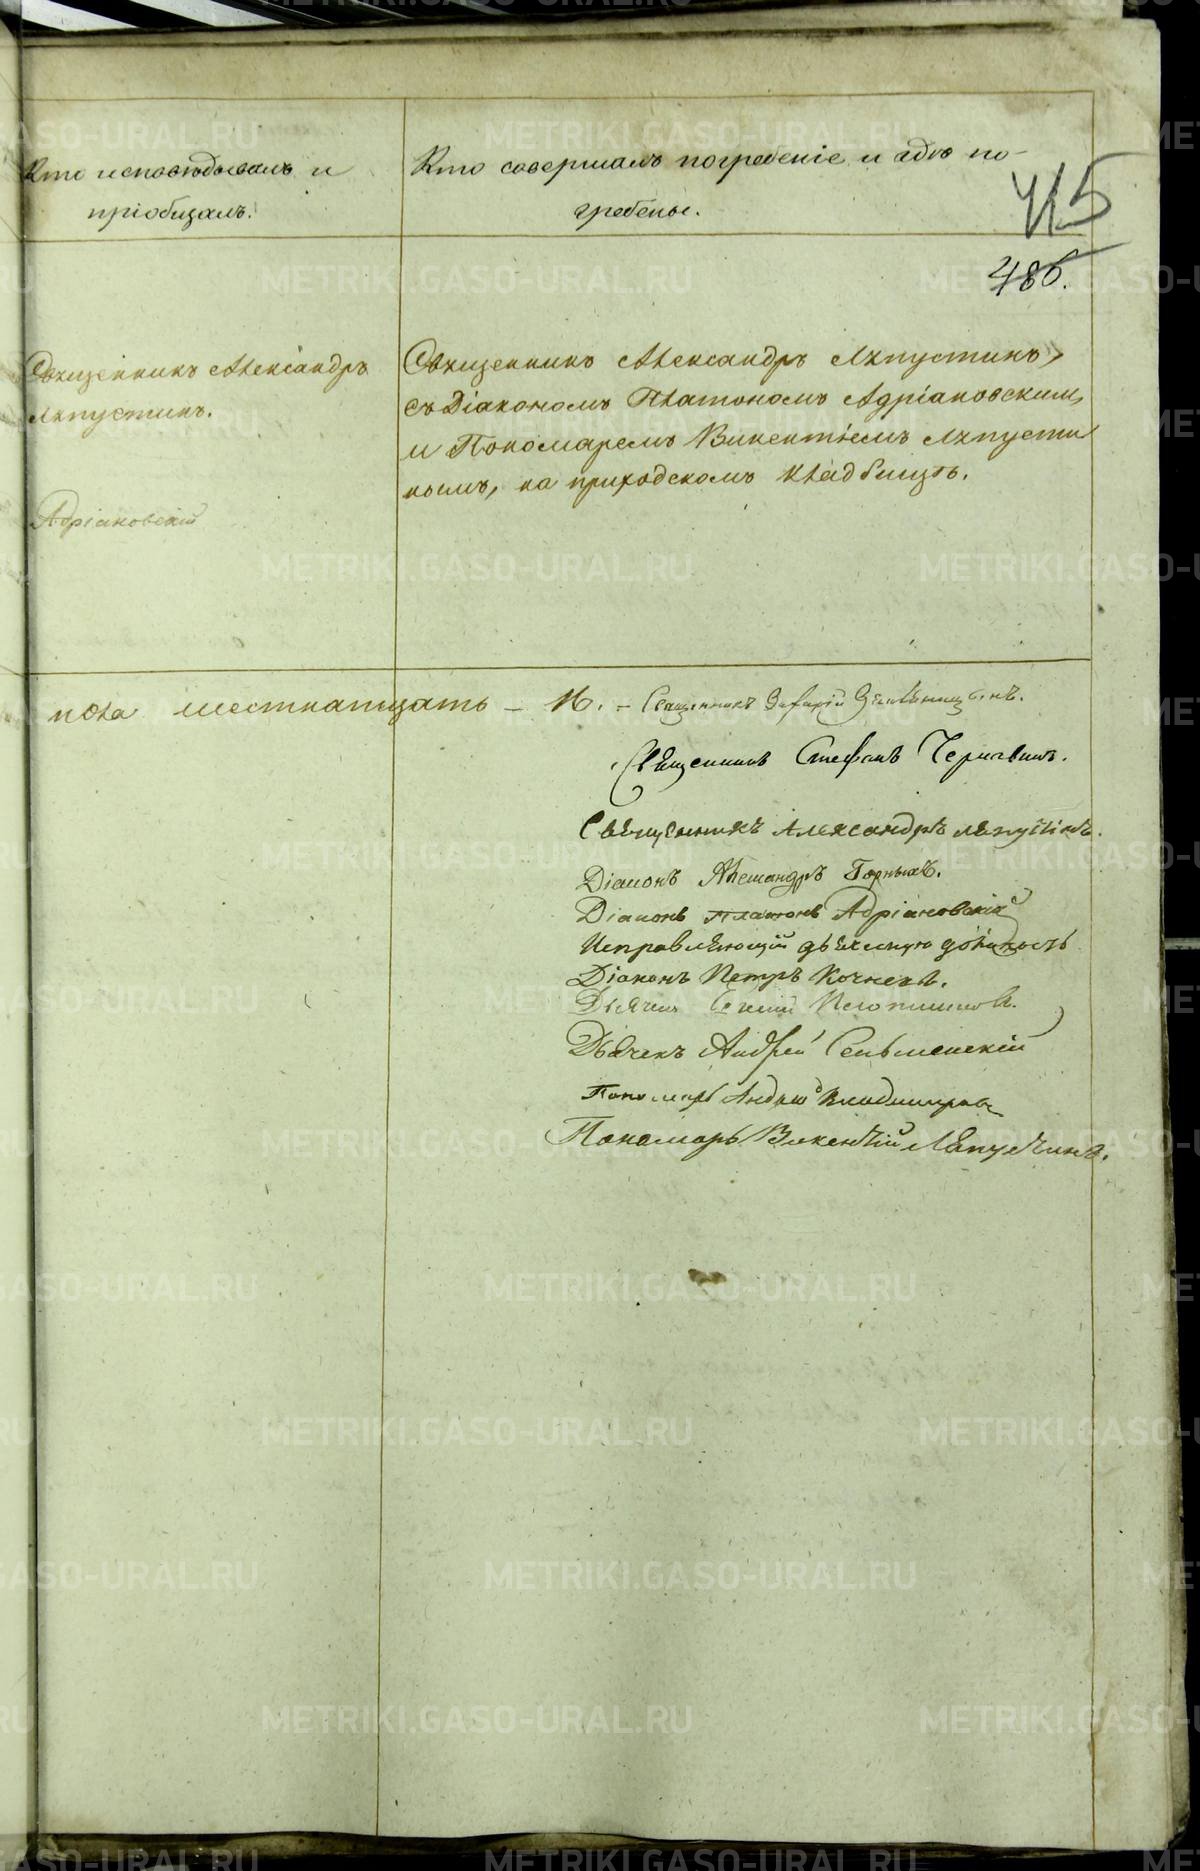 Кто исповѣдывалъ и
пріобщалъ.
Кто совершалъ погребеніе и гдѣ по-
гребены.
415
486.
Священникъ Александръ
Ляпустинъ.
Адріановскій
Священникъ Александръ Ляпустинъ,
съ Діакономъ Платономъ Адріановскимъ,
и Пономаремъ Викентіемъ Ляпусти
нымъ, на приходскомъ кладбищѣ.
пола шестнатцать – 16. – Священникъ Захарій
Священникъ Стефанъ Чернавинъ.
Священникъ Александръ Ляпустинъ.
Діаконъ Александръ Горныхъ.
Діаконъ Платонъ Адріановскій
Исправляющій дьяческую должность
Діаконъ Петръ Кочневъ.
Дьячекъ
Дьячекъ Андрей Сельменскій
Пономарь Андрей Владимировъ
Пономарь Викентій Ляпустинъ.
METRIKI.GASO-URAL.RU